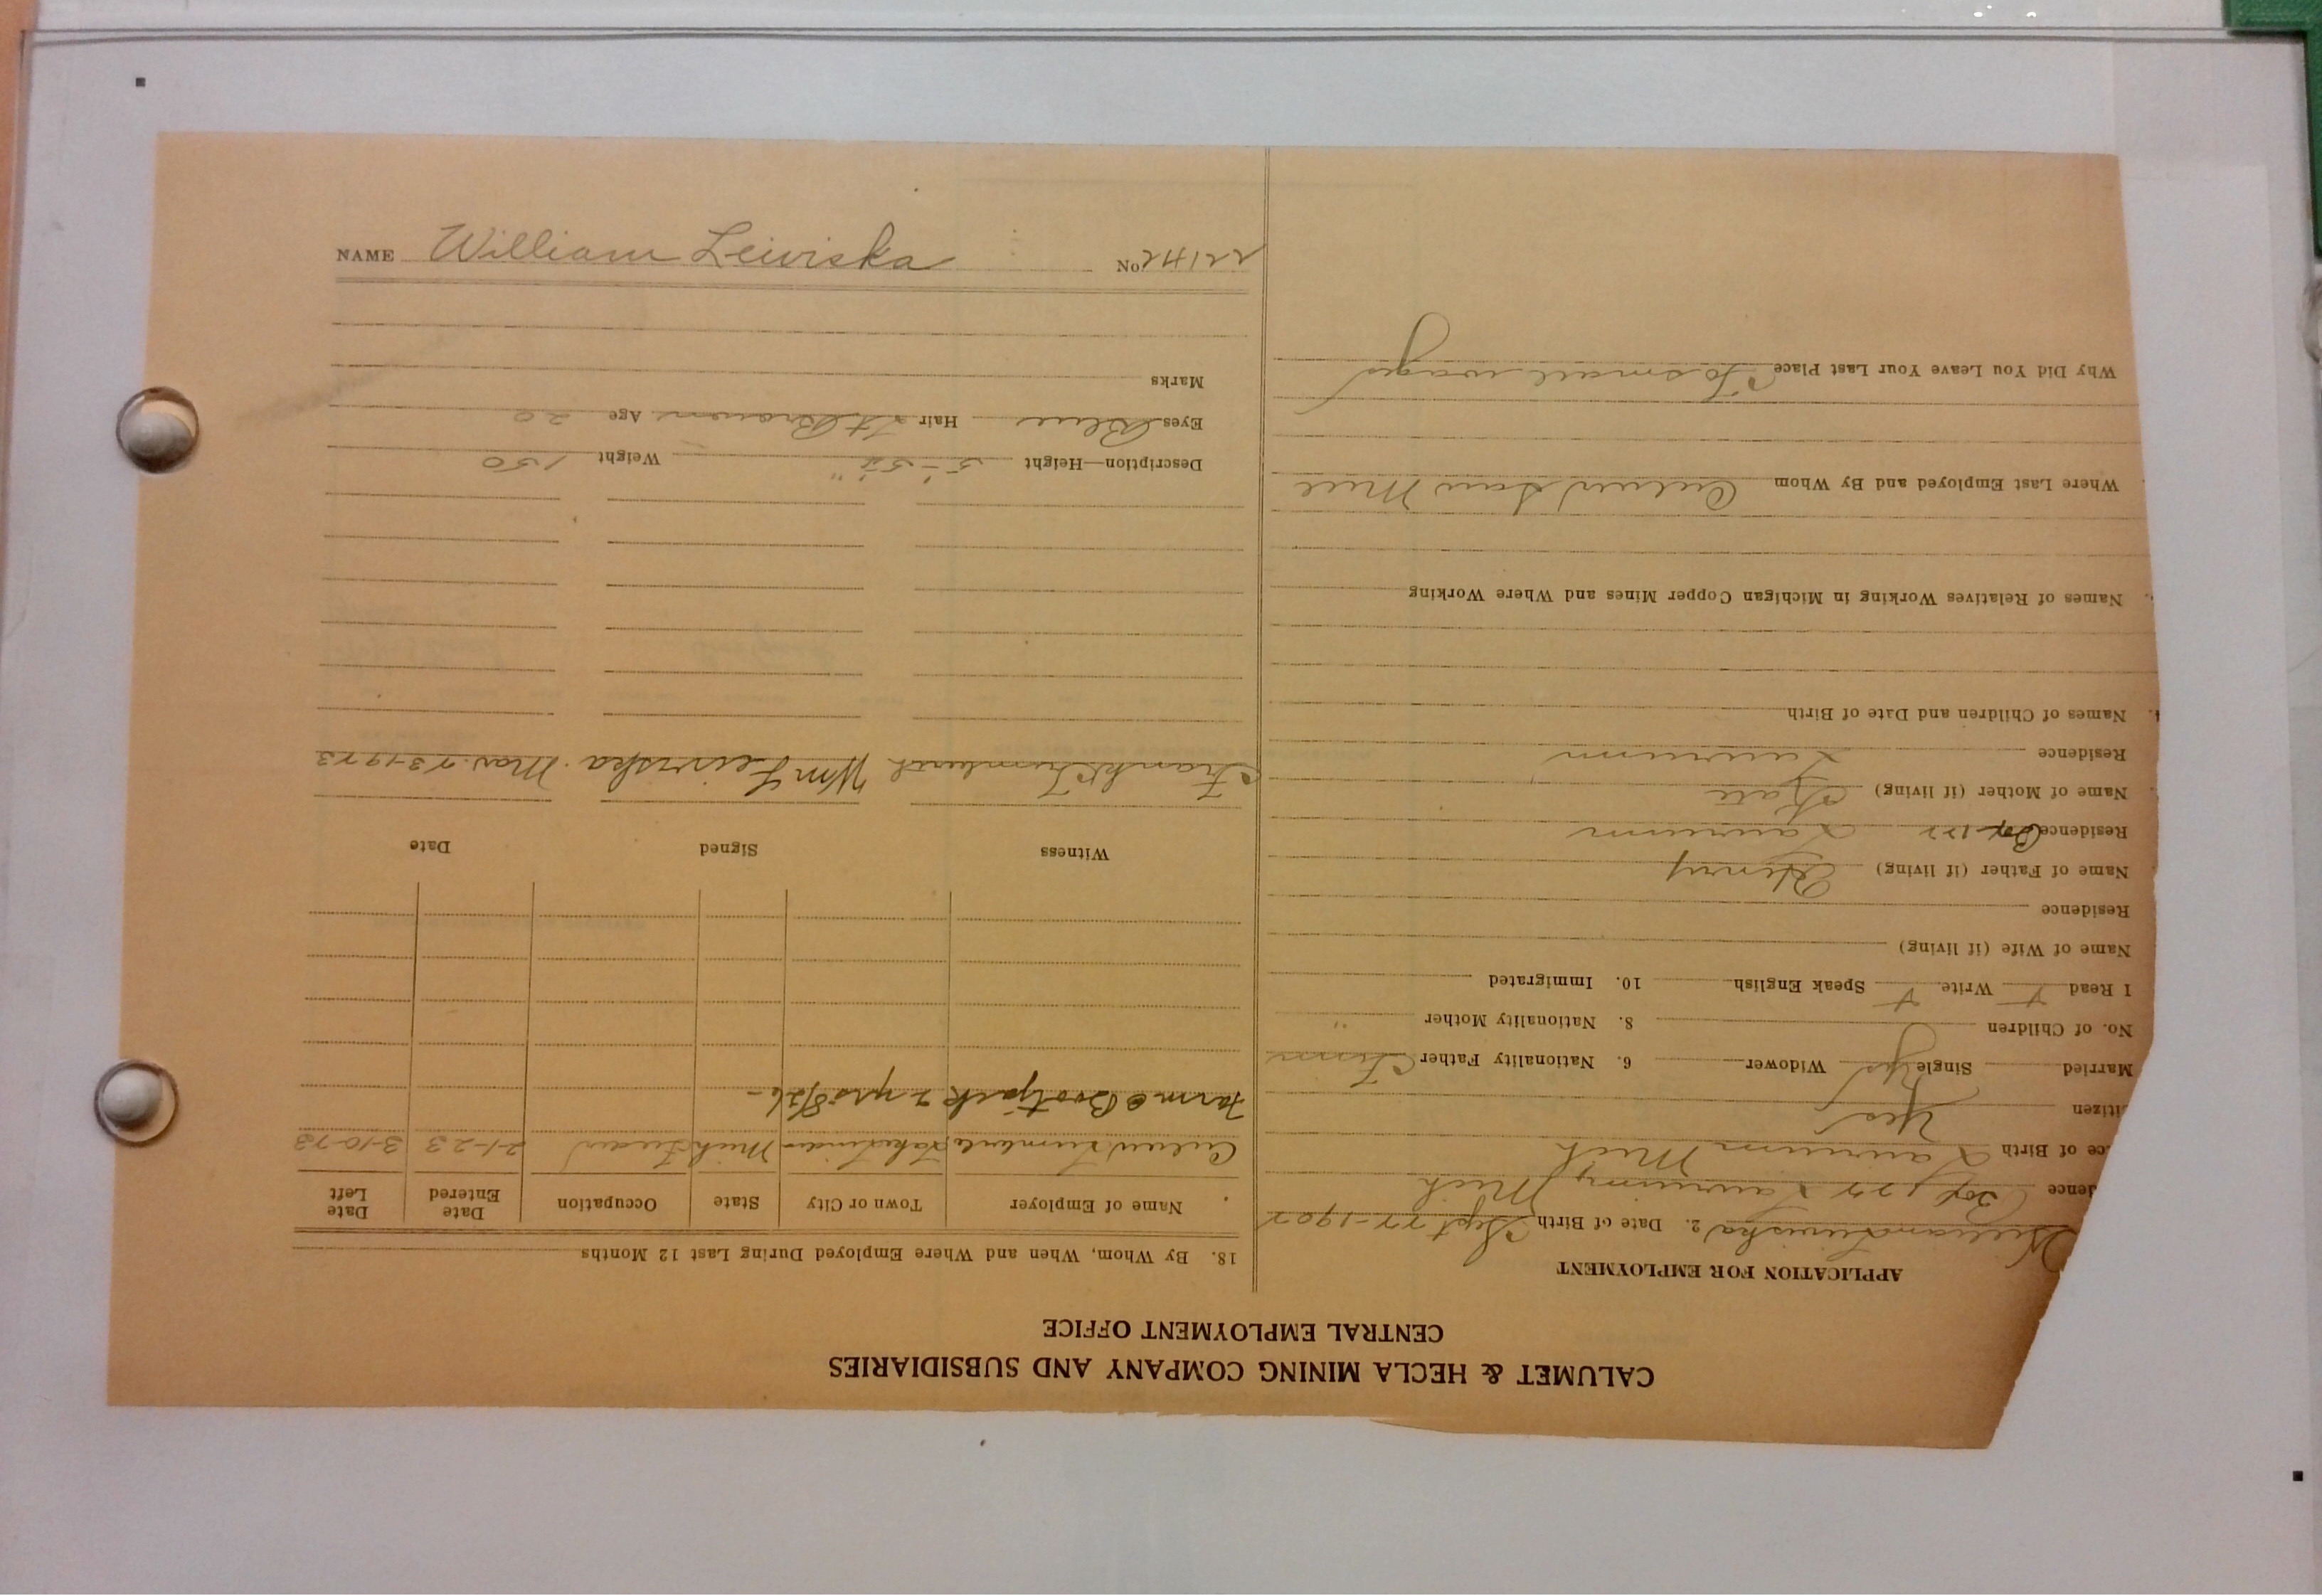 NAME William Leiviska No. 22142
CALUMET & HECLA MINING COMPANY AND SUBSIDIARIES
CENTRAL EMPLOYMENT OFFICE
APPLICATION FOR EMPLOYMENT
William Leiviska 2. Date of Birth Sept 27-1902
dence Box 122 Laurium, Mich
ce of Birth Laurium Mich
itizen Yes
Married Single Yes Widower 6. Nationality Father Finn
No. of Children 8. Nationality Mother "
I Read Write Speak English 10. Immigrated
Name of Wife (if living)
Residence
Name of Father (if living) Henry
Residence Box 122 Laurium
Name of Mother (if living) Kate
Residence Laurium
Names of Children and Date of Birth
Names of Relatives Working in Michigan Copper Mines and Where Working
Where Last Employed and By Whom Saw Mill
Why Did You Leave Your Last Place To small wages
18. By Whom, When and Where Employed During Last 12 Months
Name of Employer Town or City State Occupation Date Entered Date Left
Lake Linden Mich 2-1-23 3-10-23
Farm @ Bootjack 2 yrs 8/26-
Witness Signed Date
Frank Wm Leiviska. Mar. 13-1923
Description—Height 5'-5" Weight 150
Eyes Blue Hair Lt Brown Age 20
Marks